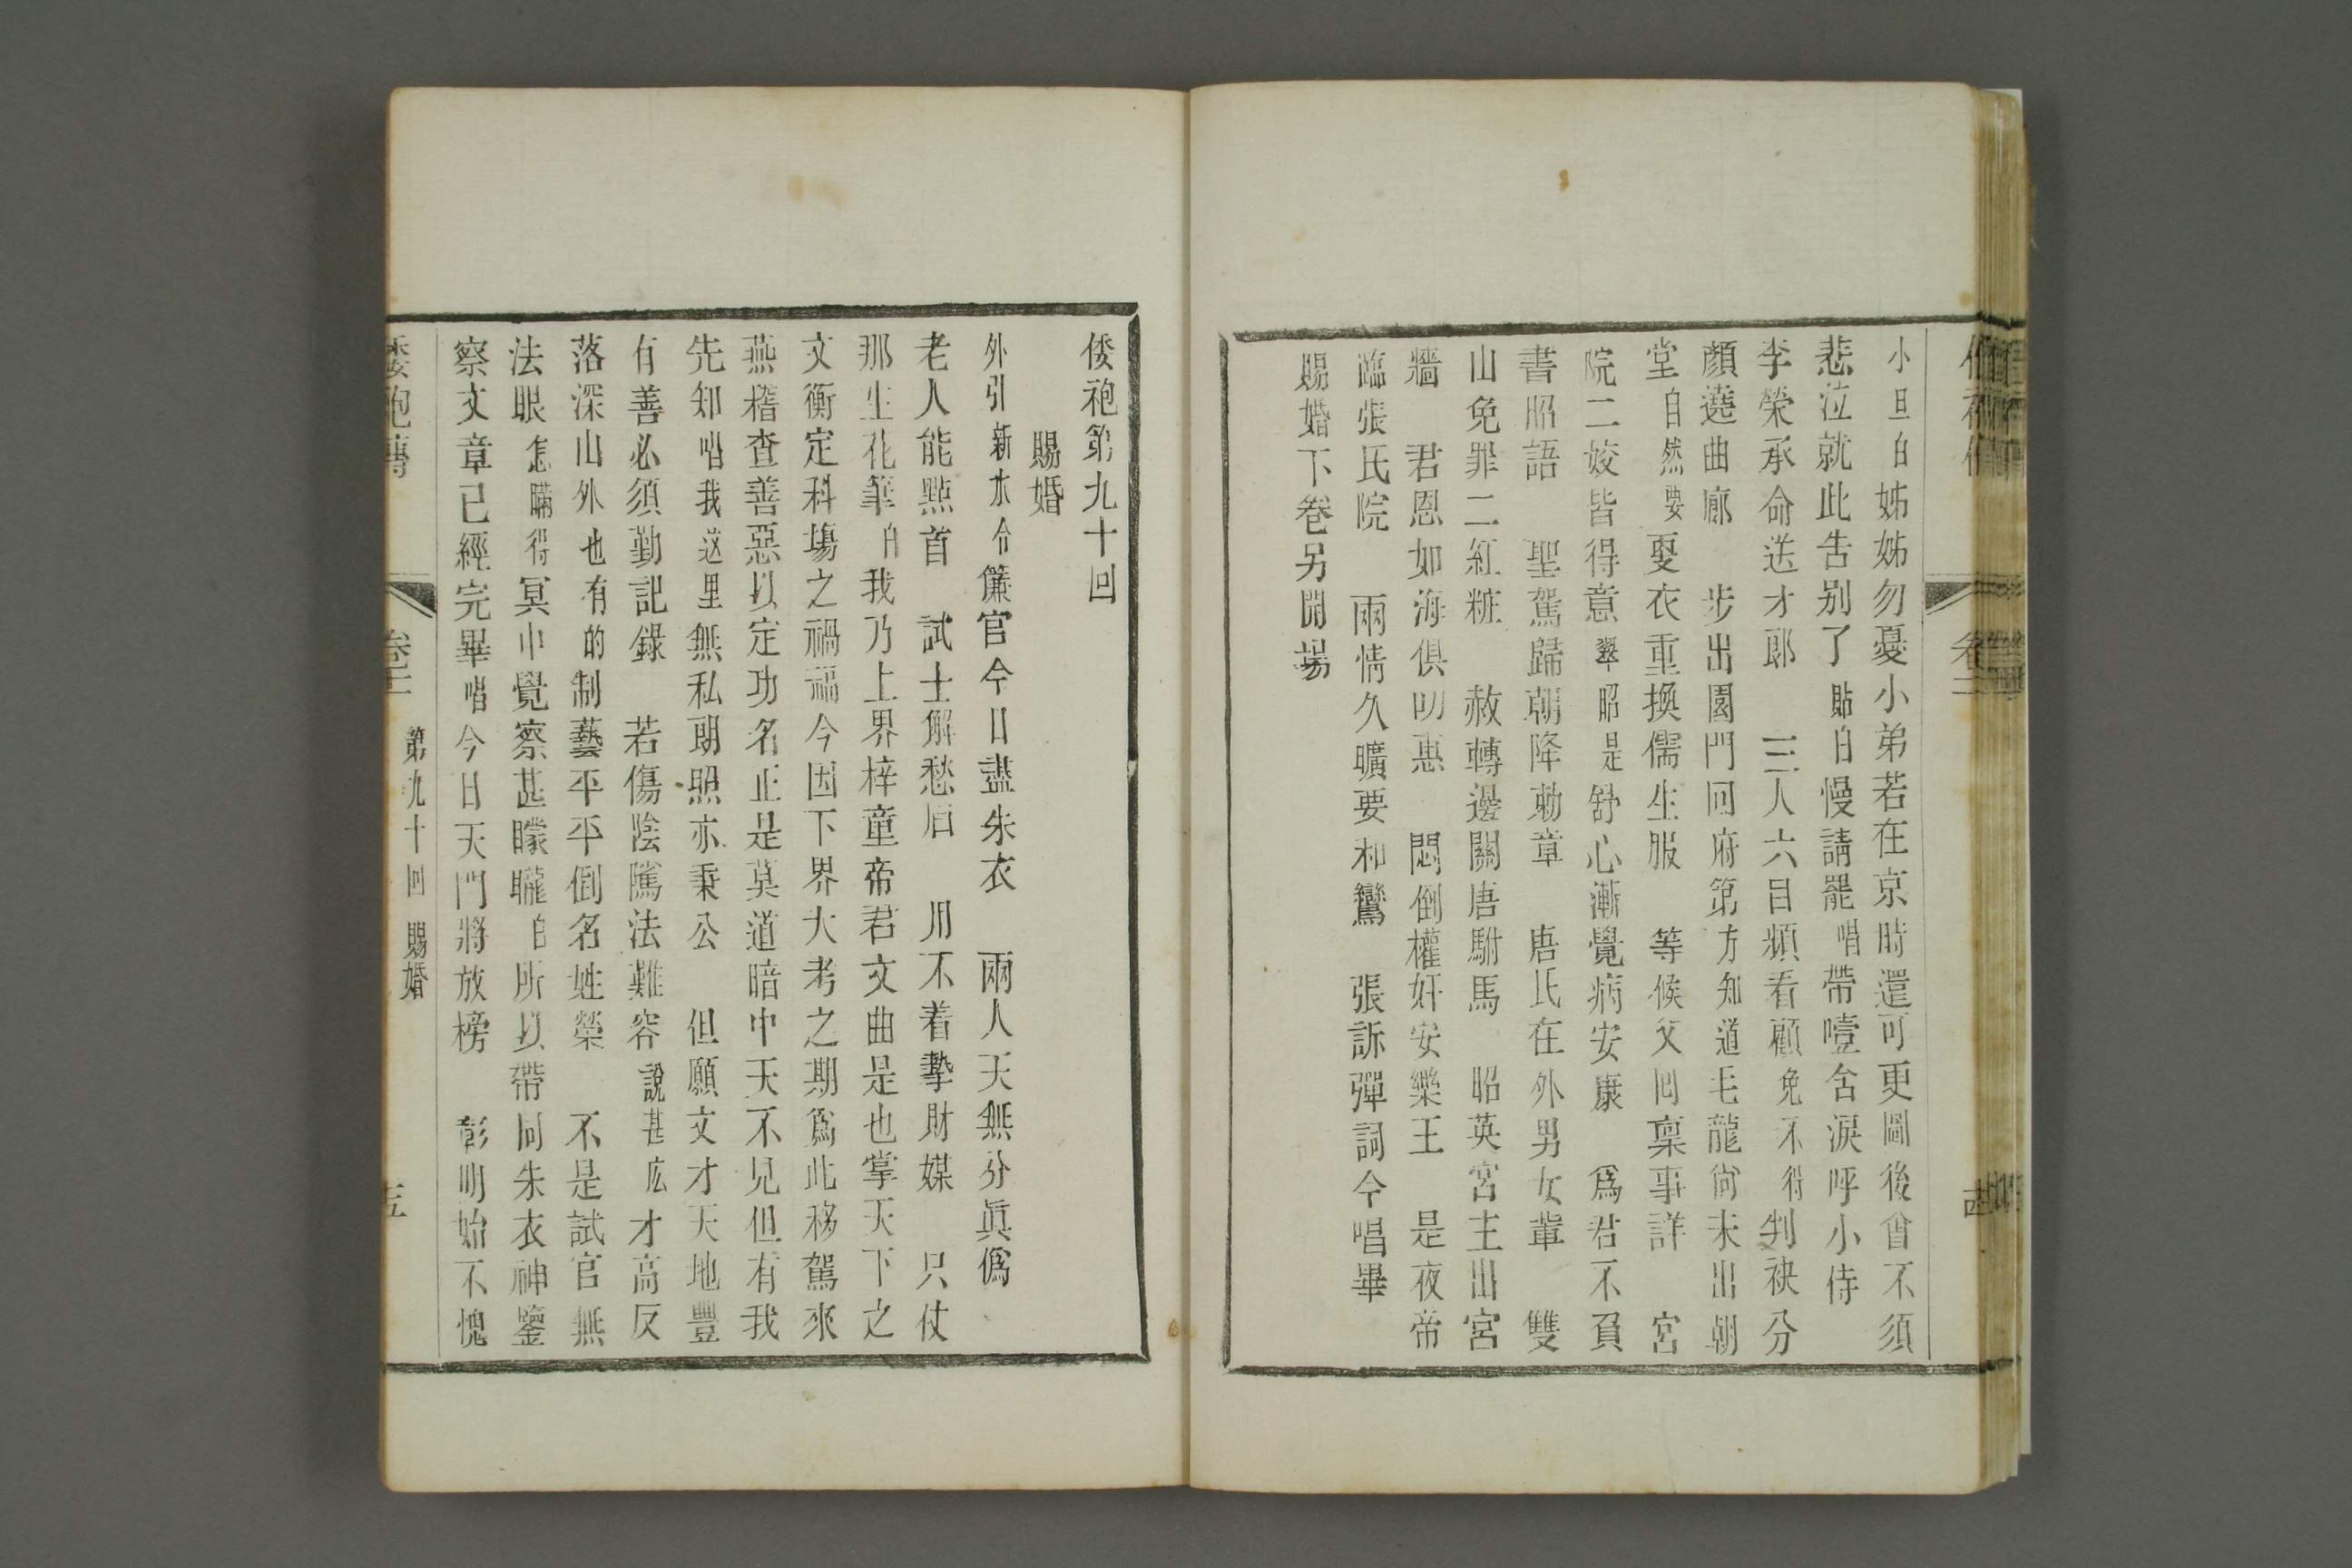 小旦白姊姊勿憂小弟若在京時還可更圖後會不須
悲泣就此告別了貼白慢請罷唱帶噎含淚呼小侍
李榮承命送才郎　三人六目頻看顧免不得判袂分
顏遶曲廊　步出園門回府第方知道毛龍尚未出朝
堂自然要更衣重換儒生服　等候父回稟事詳　宮
院二姣皆得意翠昭是舒心漸覺病安康　爲君不負
書昭語　聖駕歸朝降勅章　唐氏在外男女輩　雙
山免罪二紅粧　赦轉邊關唐駙馬　昭英宮主出宮
牆　君恩如海俱叨惠　悶倒權奸安樂王　是夜帝
臨張氏院　兩情久曠要和鸞　張訴彈詞今唱畢
賜婚下卷另開場
倭袍第九十回
賜婚
外引新水令簾官今日盡朱衣　兩人天無分眞僞
老人能點首　試士解愁眉　用不着摯財媒　只仗
那生花筆白我乃上界梓童帝君文曲是也掌天下之
文衡定科塲之禍福今因下界大考之期爲此移駕來
燕稽查善惡以定功名正是莫道暗中天不见但有我
先知唱我这里無私朗照亦秉公　但願文才天地豐
有善必須勤記錄　若傷陰隲法難容說甚庅才高反
落深山外也有的制藝平平倒名姓榮　不是試官無
法眼怎瞞得冥中覺察甚矇矓白所以帶同朱衣神鑒
察文章已經完畢唱今日天門將放榜　彰明始不愧
倭袍傳　卷十二　第九十回　賜婚　十五